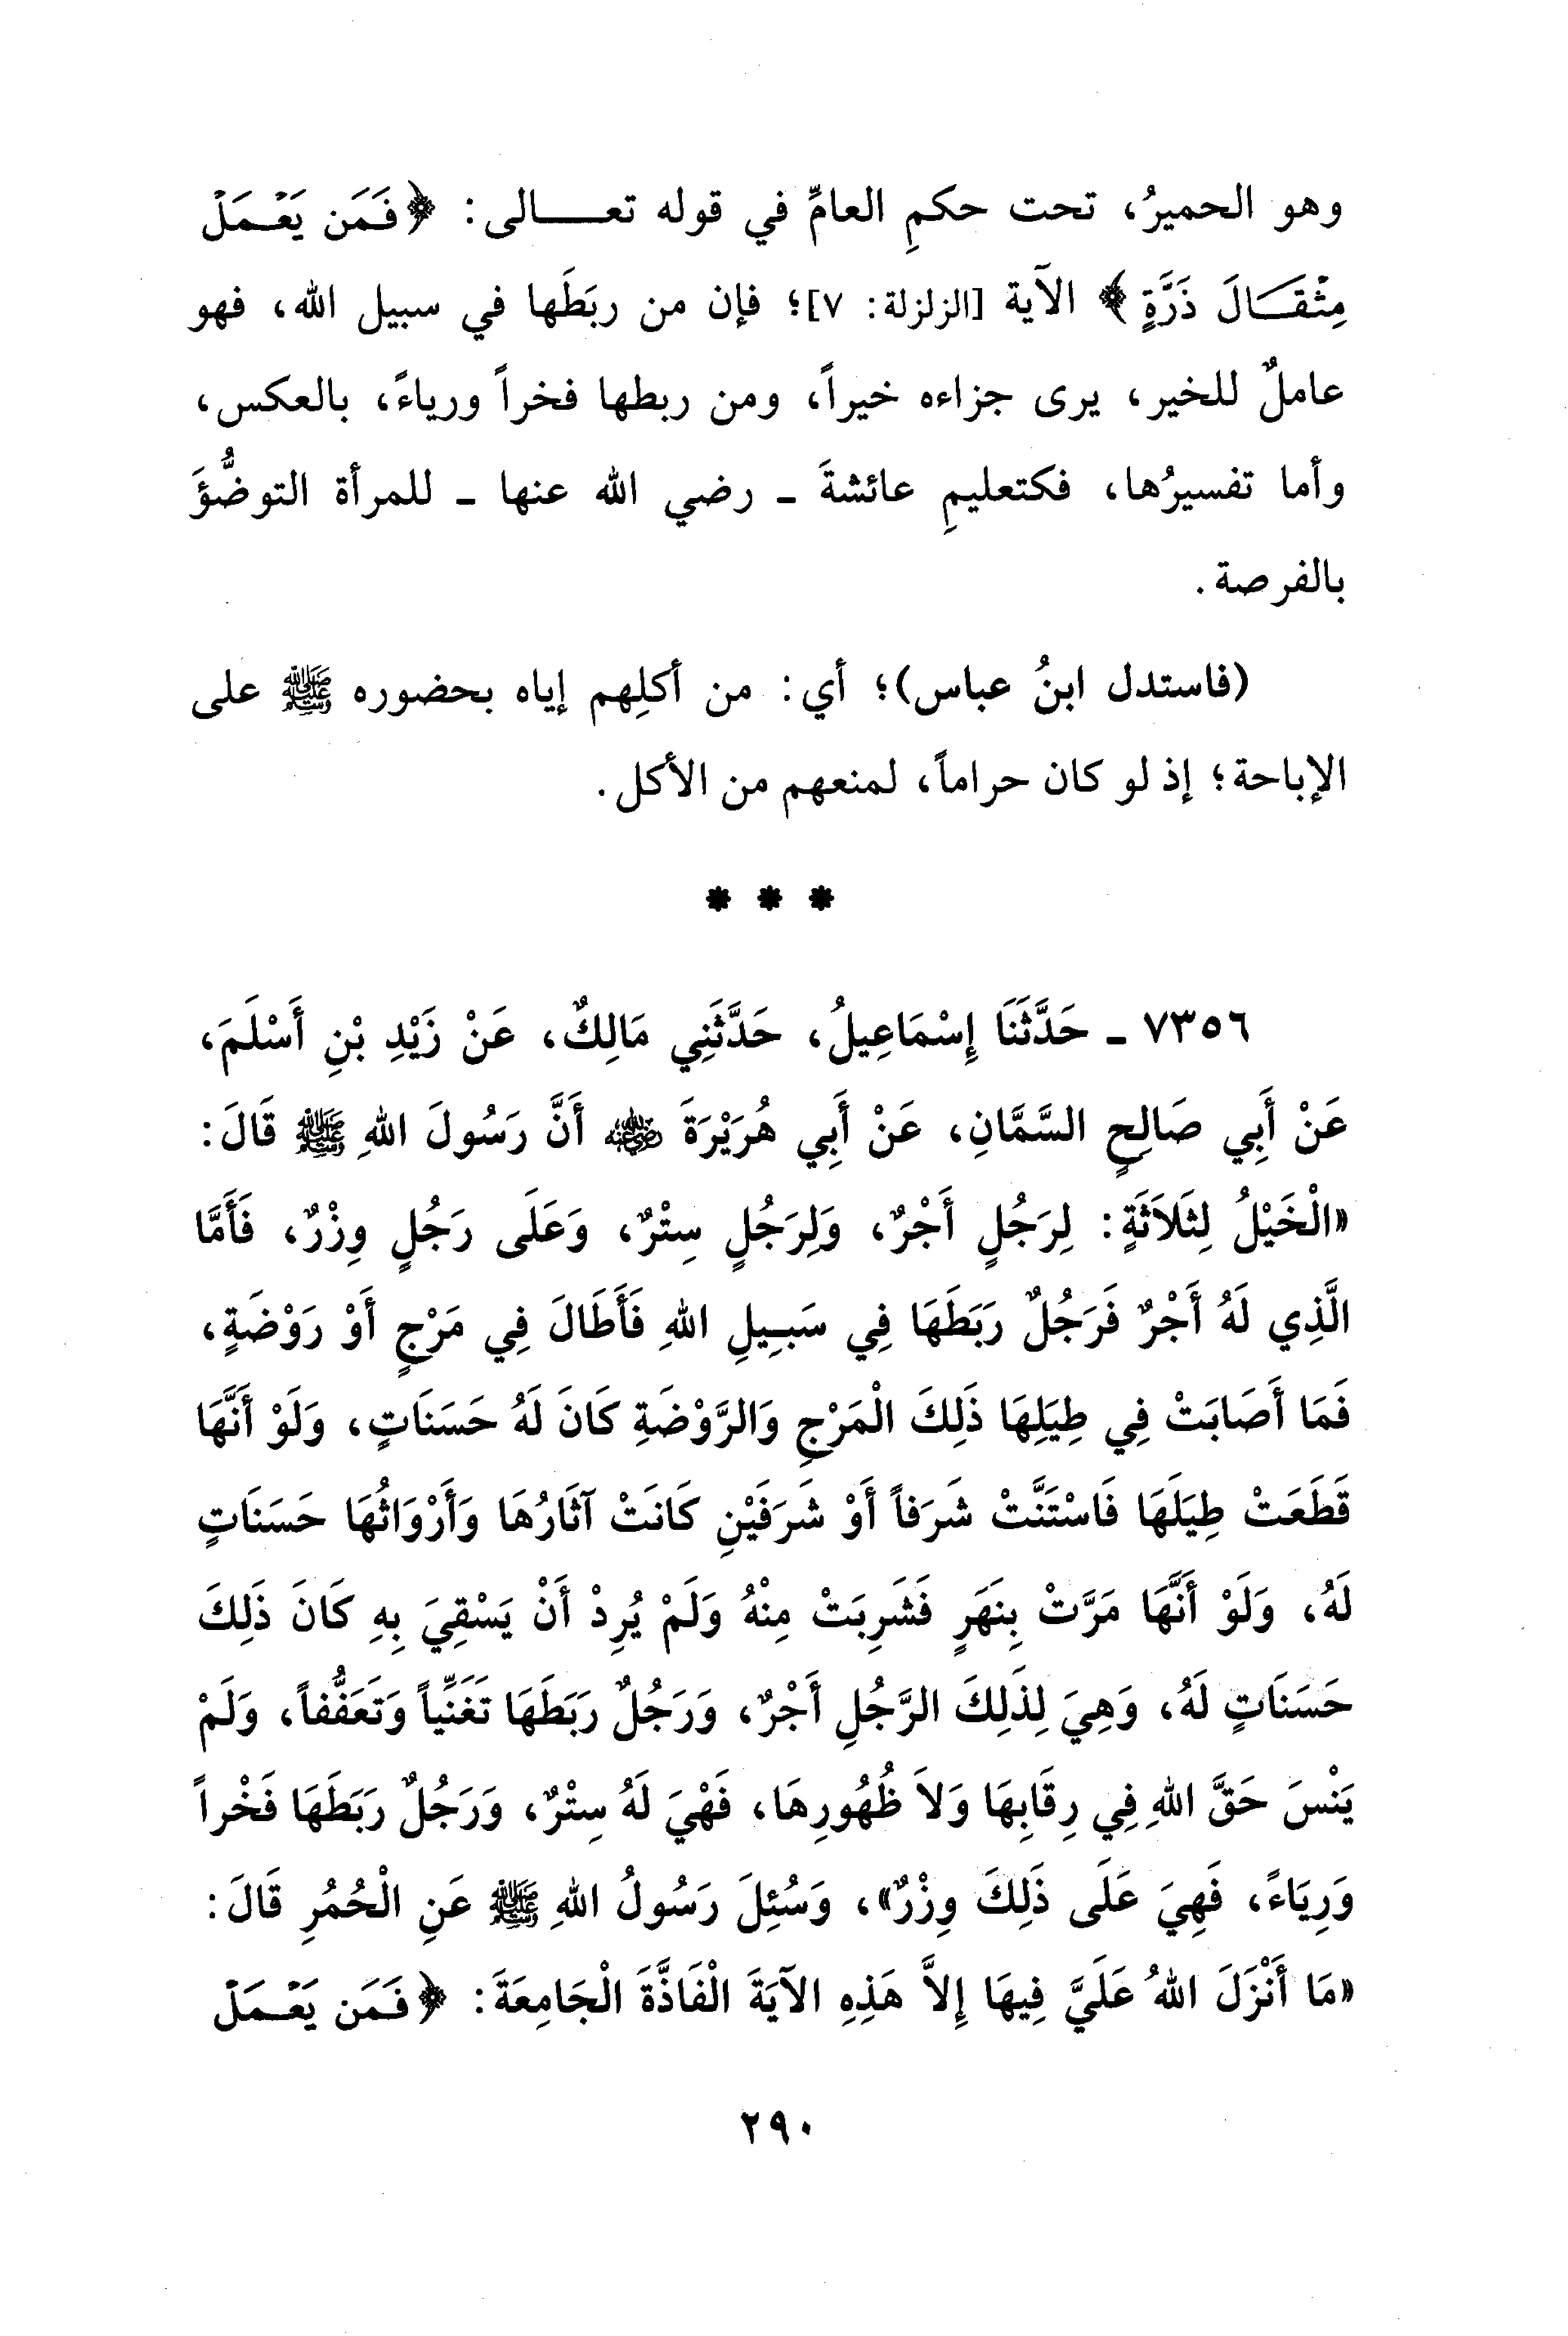 وهو الحميرُ، تحت حكمِ العامِّ في قوله تعـــالى: ﴿فَمَن يَعْمَلْ
مِثْقَالَ ذَرَّةٍ﴾ الآية [الزلزلة: ٧]؛ فإن من ربَطَها في سبيل الله، فهو
عاملٌ للخير، يرى جزاءه خيراً، ومن ربطها فخراً ورياءً، بالعكس،
وأما تفسيرُها، فكتعليمِ عائشةَ ـ رضي الله عنها ـ للمرأة التوضُّؤَ
بالفرصة.
(فاستدل ابنُ عباس)؛ أي: من أكلِهم إياه بحضوره ﷺ على
الإباحة؛ إذ لو كان حراماً، لمنعهم من الأكل.
* * *
٧٣٥٦ ـ حَدَّثَنَا إِسْمَاعِيلُ، حَدَّثَنِي مَالِكٌ، عَنْ زَيْدِ بْنِ أَسْلَمَ،
عَنْ أَبِي صَالِحٍ السَّمَّانِ، عَنْ أَبِي هُرَيْرَةَ رضي الله عنه أَنَّ رَسُولَ اللهِ ﷺ قَالَ:
«الْخَيْلُ لِثَلاَثَةٍ: لِرَجُلٍ أَجْرٌ، وَلِرَجُلٍ سِتْرٌ، وَعَلَى رَجُلٍ وِزْرٌ، فَأَمَّا
الَّذِي لَهُ أَجْرٌ فَرَجُلٌ رَبَطَهَا فِي سَبِيلِ اللهِ فَأَطَالَ فِي مَرْجٍ أَوْ رَوْضَةٍ،
فَمَا أَصَابَتْ فِي طِيَلِهَا ذَلِكَ الْمَرْجِ وَالرَّوْضَةِ كَانَ لَهُ حَسَنَاتٍ، وَلَوْ أَنَّهَا
قَطَعَتْ طِيَلَهَا فَاسْتَنَّتْ شَرَفاً أَوْ شَرَفَيْنِ كَانَتْ آثَارُهَا وَأَرْوَاثُهَا حَسَنَاتٍ
لَهُ، وَلَوْ أَنَّهَا مَرَّتْ بِنَهَرٍ فَشَرِبَتْ مِنْهُ وَلَمْ يُرِدْ أَنْ يَسْقِيَ بِهِ كَانَ ذَلِكَ
حَسَنَاتٍ لَهُ، وَهِيَ لِذَلِكَ الرَّجُلِ أَجْرٌ، وَرَجُلٌ رَبَطَهَا تَغَنِّياً وَتَعَفُّفاً، وَلَمْ
يَنْسَ حَقَّ اللهِ فِي رِقَابِهَا وَلاَ ظُهُورِهَا، فَهْيَ لَهُ سِتْرٌ، وَرَجُلٌ رَبَطَهَا فَخْراً
وَرِيَاءً، فَهِيَ عَلَى ذَلِكَ وِزْرٌ»، وَسُئِلَ رَسُولُ اللهِ ﷺ عَنِ الْحُمُرِ قَالَ:
«مَا أَنْزَلَ اللهُ عَلَيَّ فِيهَا إِلاَّ هَذِهِ الآيَةَ الْفَاذَّةَ الْجَامِعَةَ: ﴿فَمَن يَعْمَلْ
٢٩٠